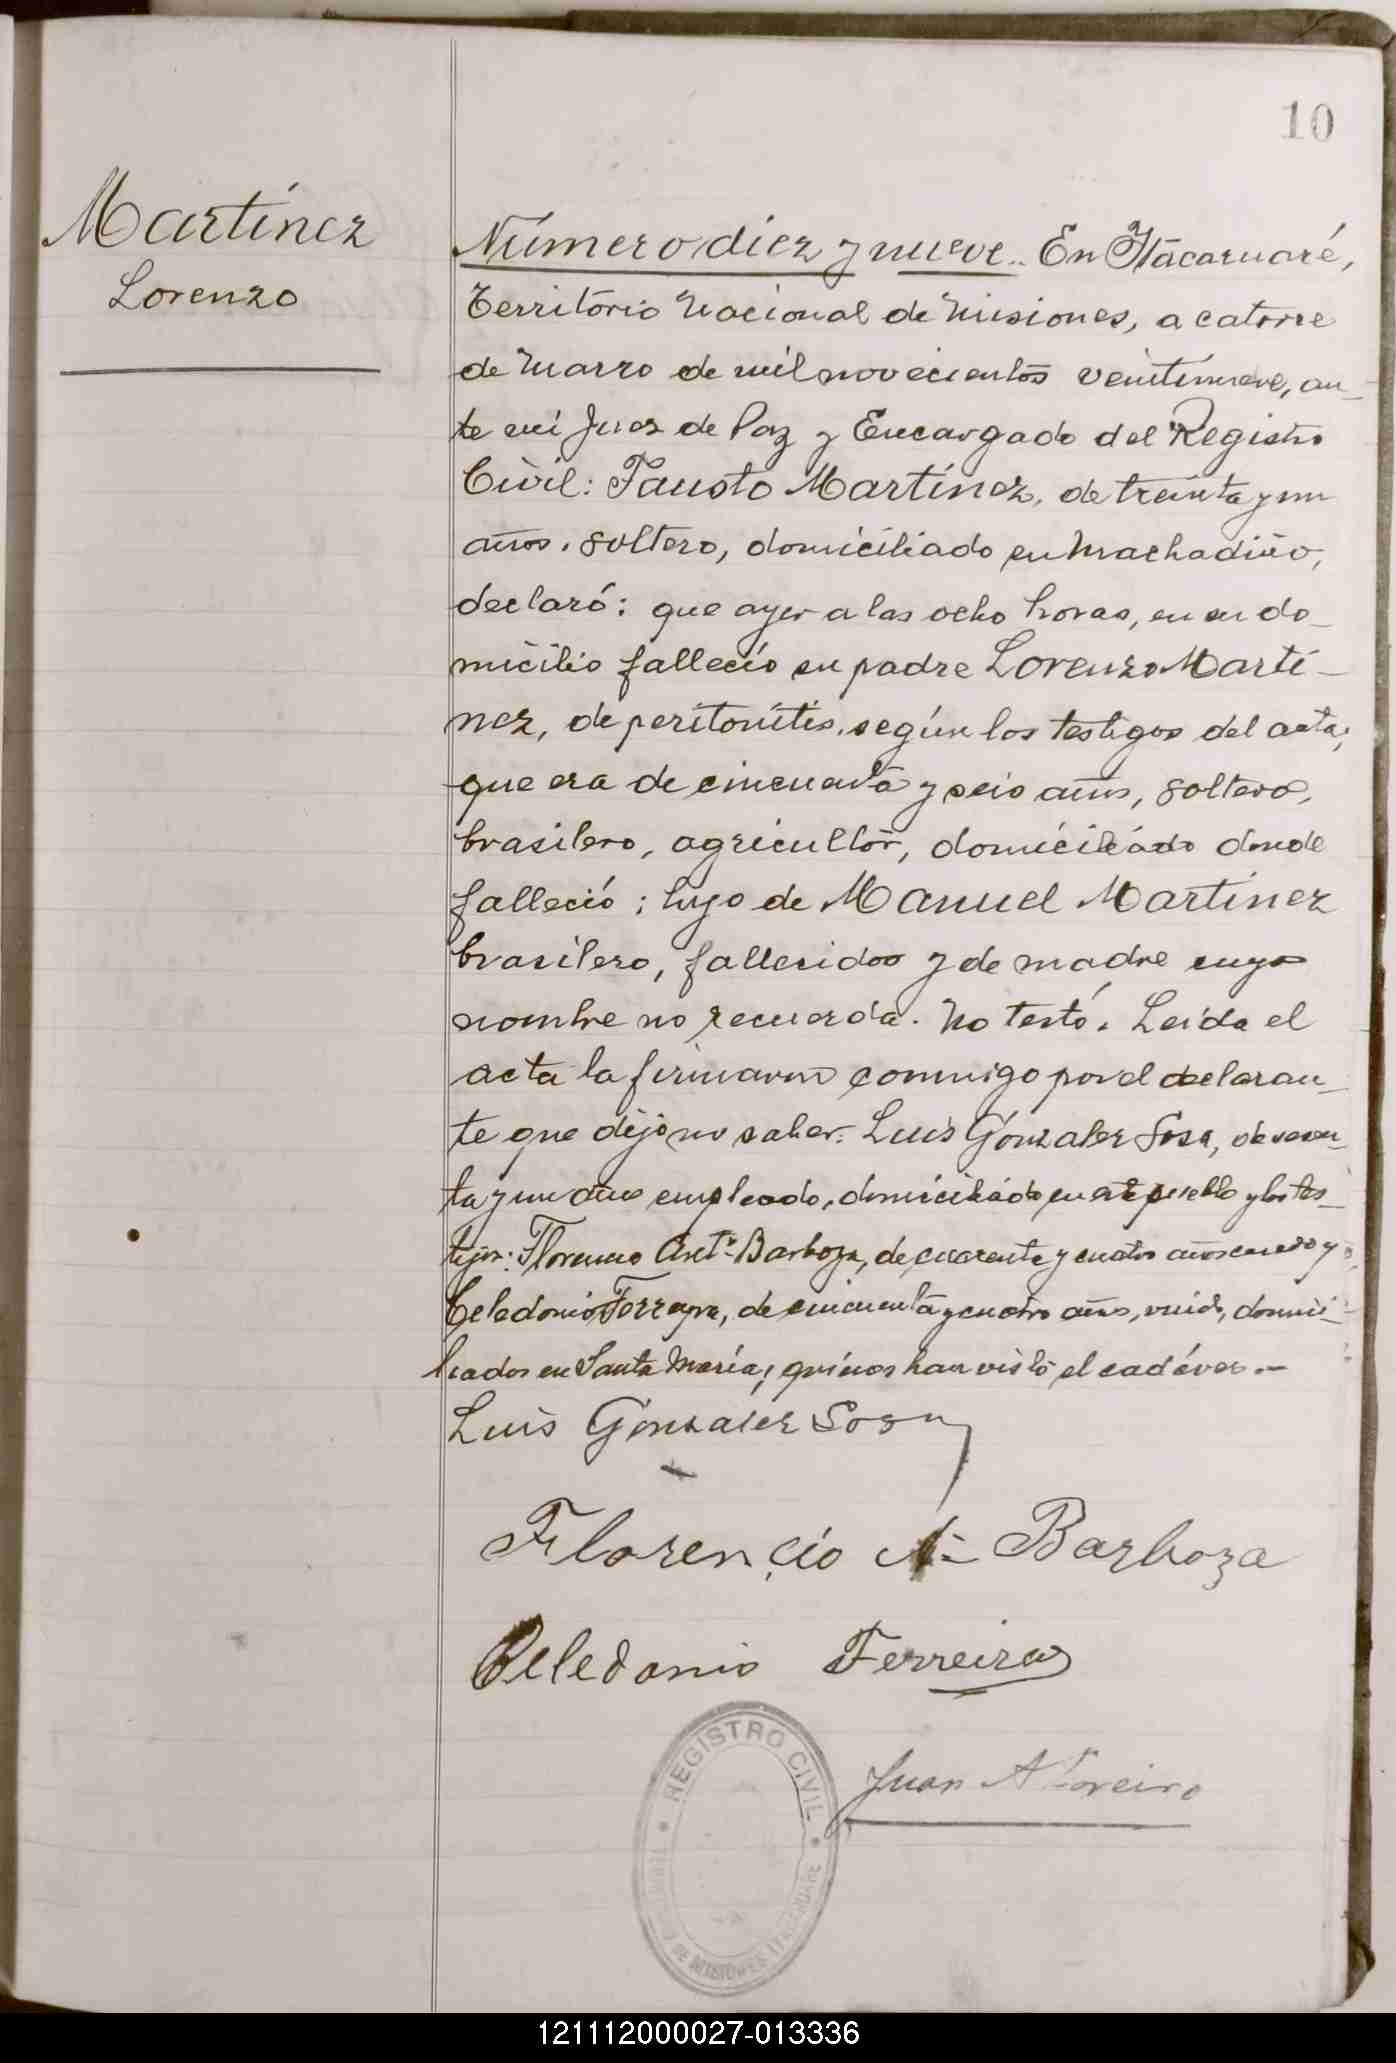 10
Martínez
Lorenzo
Número diez y nueve.. En Itacaruaré,
Territorio Nacional de Misiones, a catorce
de Marzo de mil novecientos veintinueve, an-
te mí Juez de Paz y Encargado del Registro
Civil: Fausto Martínez, de treinta y un
años, soltero, domiciliado en Machadiño,
declaró: que ayer a las ocho horas, en su do-
micilio falleció su padre Lorenzo Martí-
nez, de peritonitis, según los testigos del acta;
que era de cincuenta y seis años, soltero,
brasilero, agricultor, domiciliado donde
falleció; hijo de Manuel Martínez
brasilero, fallecidos y de madre cuyo
nombre no recuerda. No testó. Leída el
acta la firmaron conmigo por el declaran-
te que dijo no saber: Luis Gonzalez Sosa, de
ta y un años empleado, domiciliado en este pueblo y los tes-
tigos: Florencio Antº Barboza, de cuarenta y cuatro años casado y
Celedonio Ferreyra, de cincuenta y cuatro años, viudo, domici-
liados en Santa María; quienes han visto el cadáver.-
Luis Gonzalez Sosa
Florencio A- Barboza
Celedonio Ferreira
Juan A Loreiro
REGISTRO CIVIL
DE MISIONES ITACARUARE
121112000027-013336